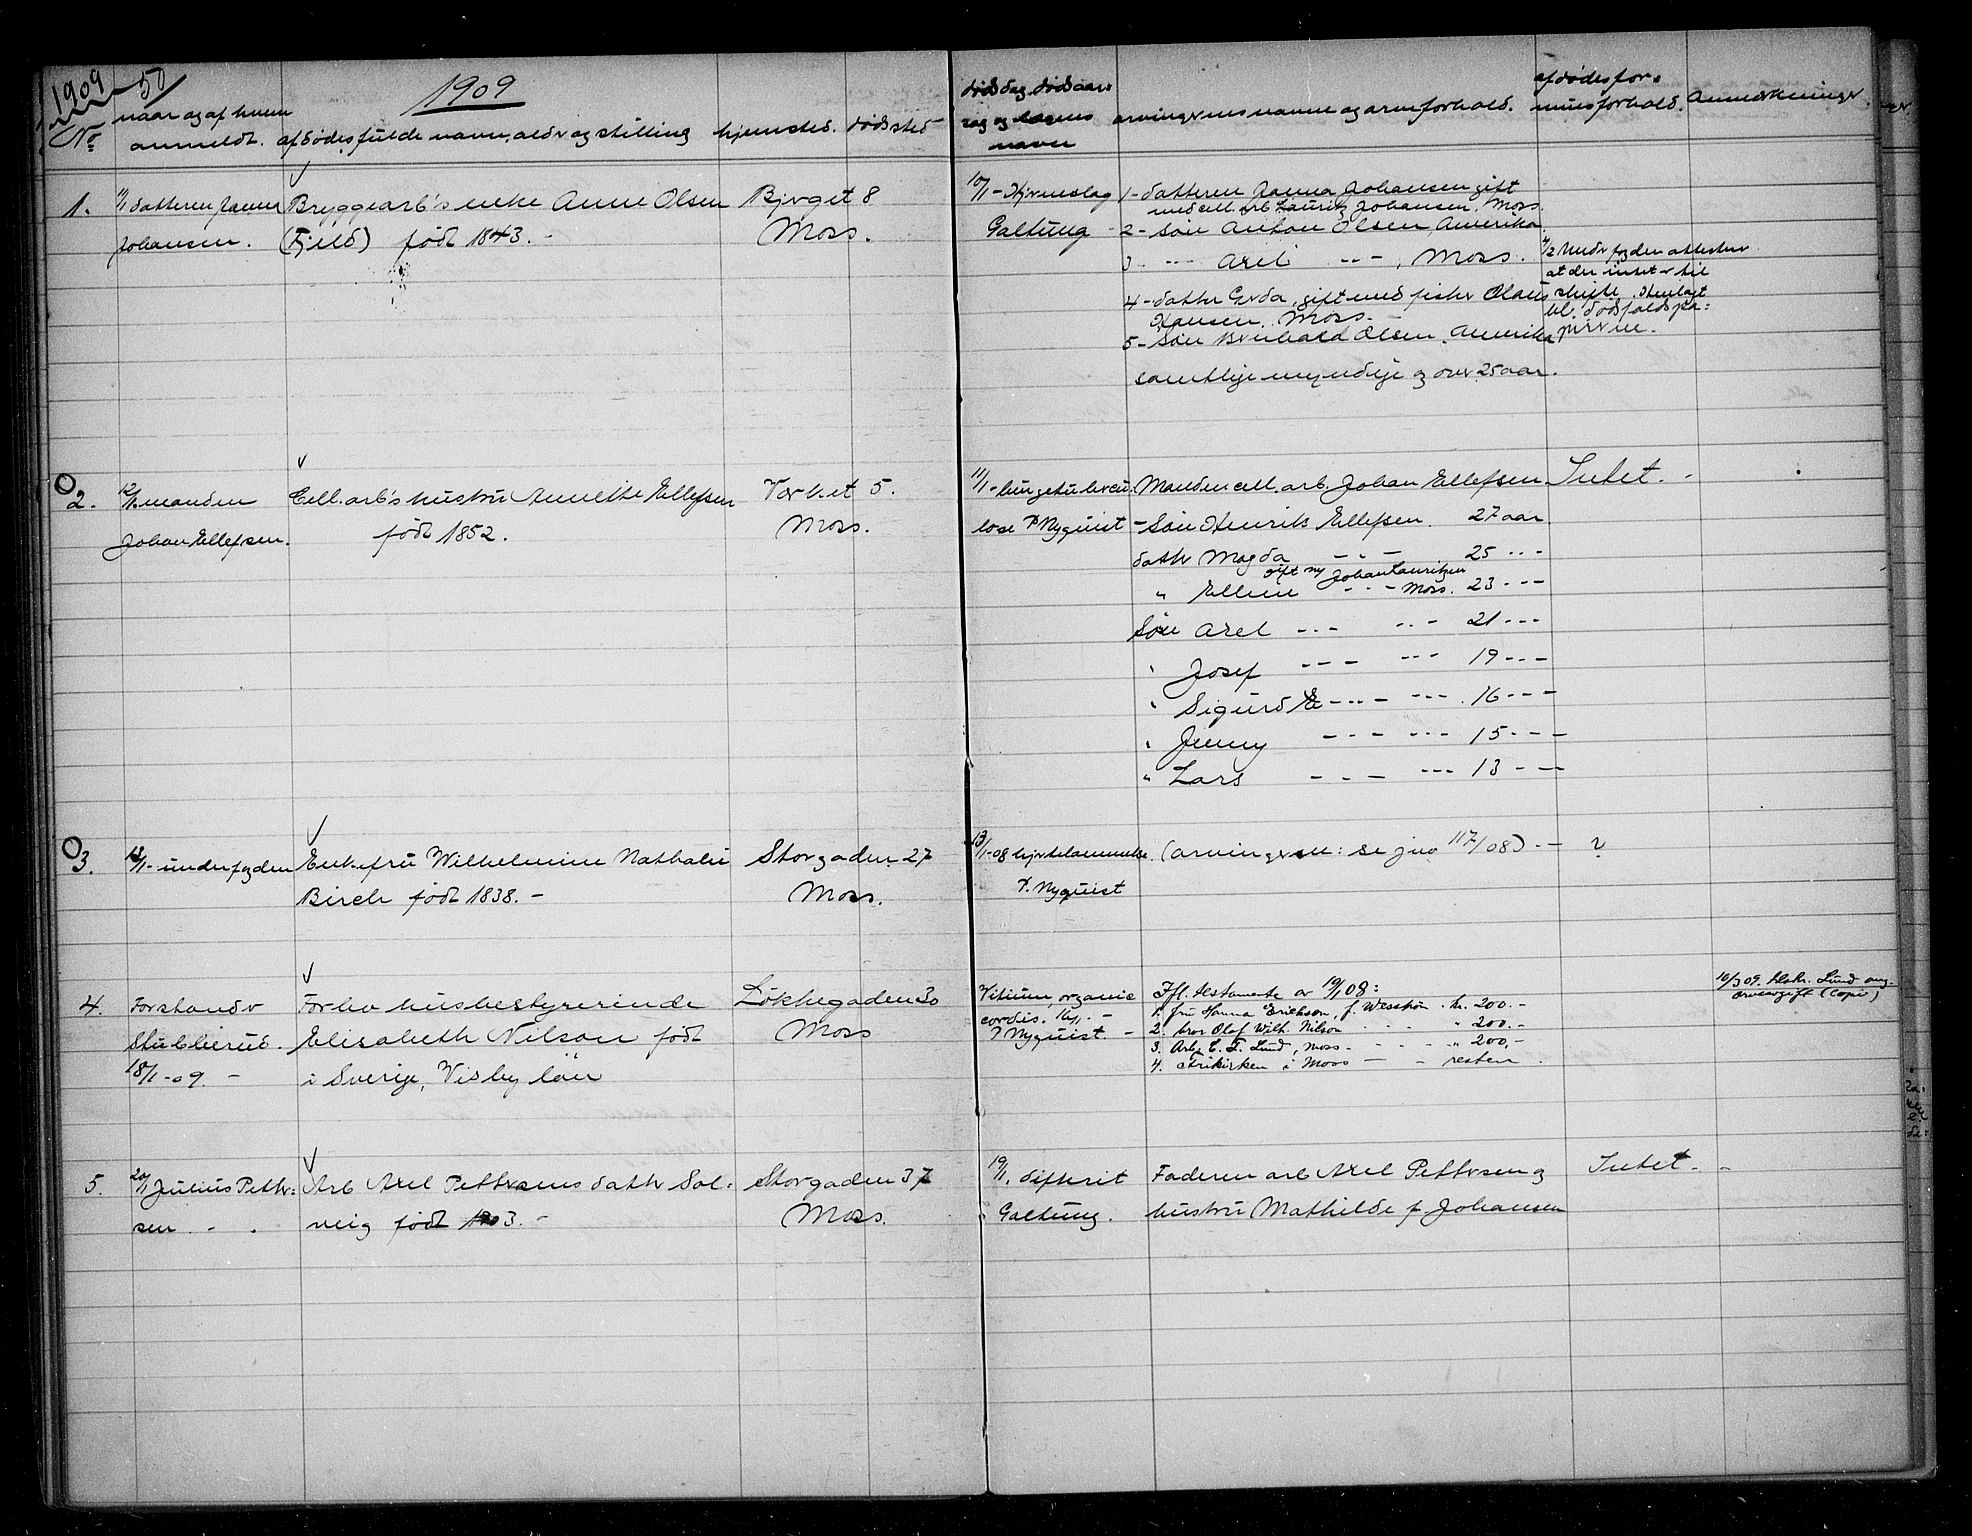 1909 50/ 1909
No
naar og af hvem
anmeldt. afdødes fulde navn, alder og stilling hjemsted. dødsted
dødsdag. dødsaar:
sag og lægens
navn
arvingernes navne og arveforhold.
afdødes for:
muesforhold. Anmærkninger.
1. 11/1 datteren Janna
Johansen.
Bryggearb's enke Anne Olsen
(Fjeld) født 1843. -
Bjerget 8
Moss.
10/1 - Hjerneslag
Galtung -
1 - datteren Janna Johansen gift
med cell. arb Lauritz Johansen. Moss.
2 - Søn Anton Olsen, Amerika.
3 -"- Axel -"-, Moss.
4 - datter Gerda, gift med fisker Olaus
Hansen. Moss. -
5 - Søn Bernhard Olsen, Amerika
samtlige myndige og over 25 aar.
4/2 Underfogden attesterer
at der intet er til
skifte. Henlagt
bl. dødsfaldspa:
pirerne.
2. 12/1 manden
Johan Ellefsen.
Cell. arb's hustru Annette Ellefsen
født 1852.
Værket 5.
Moss.
11/1 - lungetubercu:
lose D Nyquist
Manden cell. arb. Johan Ellefsen
- Søn Henrik Ellefsen. 27 aar
datter Magda - " - 25 - - -
gift m/ Johan Lauritzen
" Ellen - - - Moss. 23 - - -
Søn Axel - - - - - - 21 - - -
" Josef - - - - - - 19 - - -
" Sigurd E - " - - - - 16 - - -
" Jenny - - - - - - 15 - - -
" Lars - - - - - - 13 - - -
Intet. -
3. 13/1 - underfogden
Enkefru Wilhelmine Nathalie
Birch født 1838. -
Storgaden 27
Moss.
13/1-08 hjertelammelse.
D. Nyquist
(arvingerne: se jno 117/08) . -
?
4. Forstander
Stubberud.
18/1 - 09. -
Forhv husbestyrerinde
Elisabeth Nilson født
i Sverige, Visby län
Løkkegaden 30
Moss
Vitium organic
cordis. 16/1. -
D Nyquist. -
Ifl. testamente av 19/1 08:
1. fru Hanna Erikson, f. Wesström . kr. 200. -
2. bror Olaf Wilh. Nilson - - - " 200. -
3. Arb. C. L. Lund, Moss - - - " 200. -
4. Frikirken i Moss - - resten .
10/3 09. tilskr. Lund ang.
arveavgift (Copi)
5. 20/1 Julius Petter:
sen. - .
Arb Axel Pettersens datter Sol:
veig født 1903. -
Storgaden 37
Moss.
19/1. difterit
Galtung.
Faderen arb Axel Pettersen og
hustru Mathilde f. Johansen
Intet. -